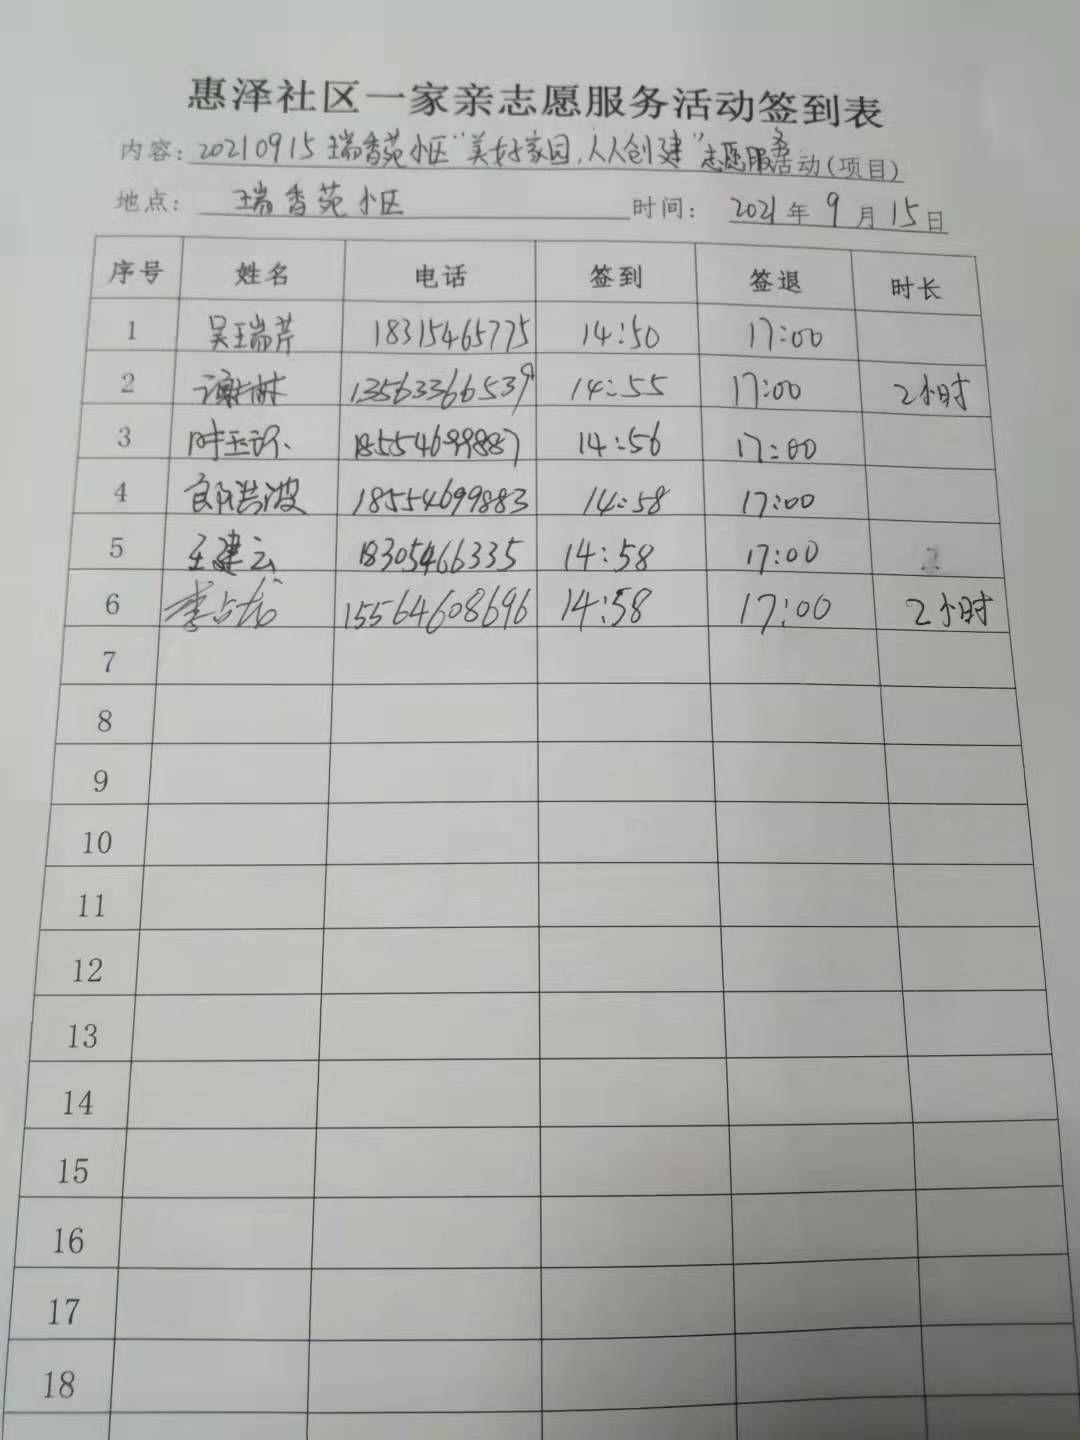 惠泽社区一家亲志愿服务活动签到表
内容：20210915瑞香苑小区“美好家园，人人创建”志愿服务活动（项目）
地点：瑞香苑小区 时间：2021年9月15日
序号 姓名 电话 签到 签退 时长
1 吴瑞芹 18315465775 14:50 17:00
2 谢树林 13563366539 14:55 17:00 2小时
3 时玉 18554699887 14:56 17:00
4 郎洪波 18554699883 14:58 17:00
5 王建云 18305466335 14:58 17:00
6 李占龙 15564608696 14:58 17:00 2小时
7
8
9
10
11
12
13
14
15
16
17
18